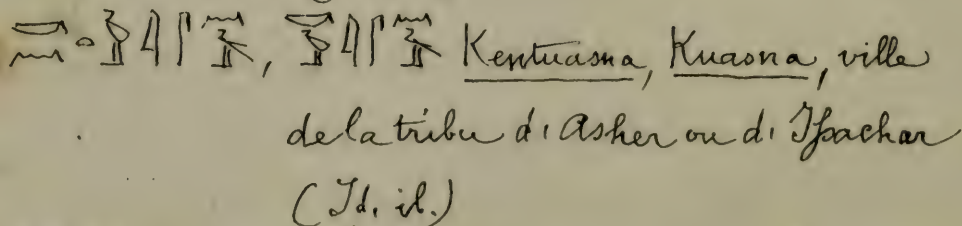 Kentuasna, Kuasna, ville
de la tribu d'Asher ou d'Issachar
(Id. ib.)